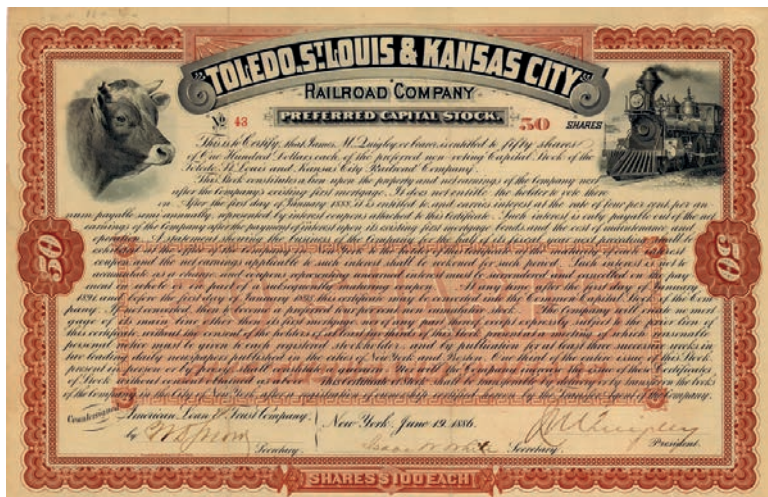 TOLEDO, ST. LOUIS & KANSAS CITY
RAILROAD COMPANY
No 43 PREFERRED CAPITAL STOCK. 50 SHARES
This is to Certify, that James M. Quigley or bearer, is entitled to fifty shares
of One Hundred Dollars each of the preferred non-voting Capital Stock of the
Toledo, St. Louis and Kansas City Railroad Company.
This Stock constitutes a lien upon the property and net earnings of the Company next
after the Company's existing first mortgage. It does not entitle the holder to vote thereon.
After the first day of January 1888, it is entitled to, and carries interest at the rate of four per cent per an-
num payable semi annually, represented by interest coupons attached to this Certificate. Such interest is only payable out of the net
earnings of the Company after the payment of interest upon its existing first mortgage bonds and the cost of maintenance and
operation. A statement showing the business of the Company for the half of its fiscal year next preceding shall be
coupon and the net earnings applicable to such interest shall be
accumulate as a charge, and coupons representing unearned interest must be surrendered and cancelled on the pay-
ment in whole or in part of a subsequently maturing coupon. At any time after the first day of January
1891 and before the first day of January this certificate may be converted into the Common Capital Stock of the Com-
pany. If not converted, then it becomes a preferred four per cent non cumulative stock. The Company will create no mort-
gage of its main line other than its first mortgage, nor of any part thereof except expressly subject to the prior lien of
this certificate, without the consent of the holders of at least two thirds of this Stock, given at a meeting, of which reasonable
personal notice must be given to each registered stockholder, and by publication for at least three successive weeks in
two leading daily newspapers published in the cities of New York and Boston. One third of the entire issue of this Stock
present in person or by proxy shall constitute a quorum. Nor will the Company increase the issue of these Certificates
of Stock without consent obtained as above. This Certificate of Stock shall be transferable by delivery or by transfer on the books
of the Company in the City of New York, after a registration of ownership certified hereon by the Transfer Agent of the Company.
Countersigned American Loan & Trust Company. New York, June 19, 1886.
by Secretary. Isaac W. White Secretary. J M Quigley President.
50
50
SHARES $100 EACH